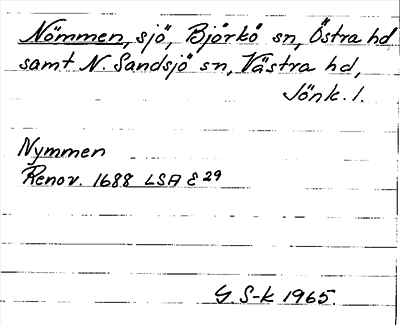 Nömmen, sjö, Björkö sn, Östra hd
samt N. Sandsjö sn, Västra hd,
Jönk. l.
Nymmen
Renov. 1688 LSA E 29
G. S-k 1965.